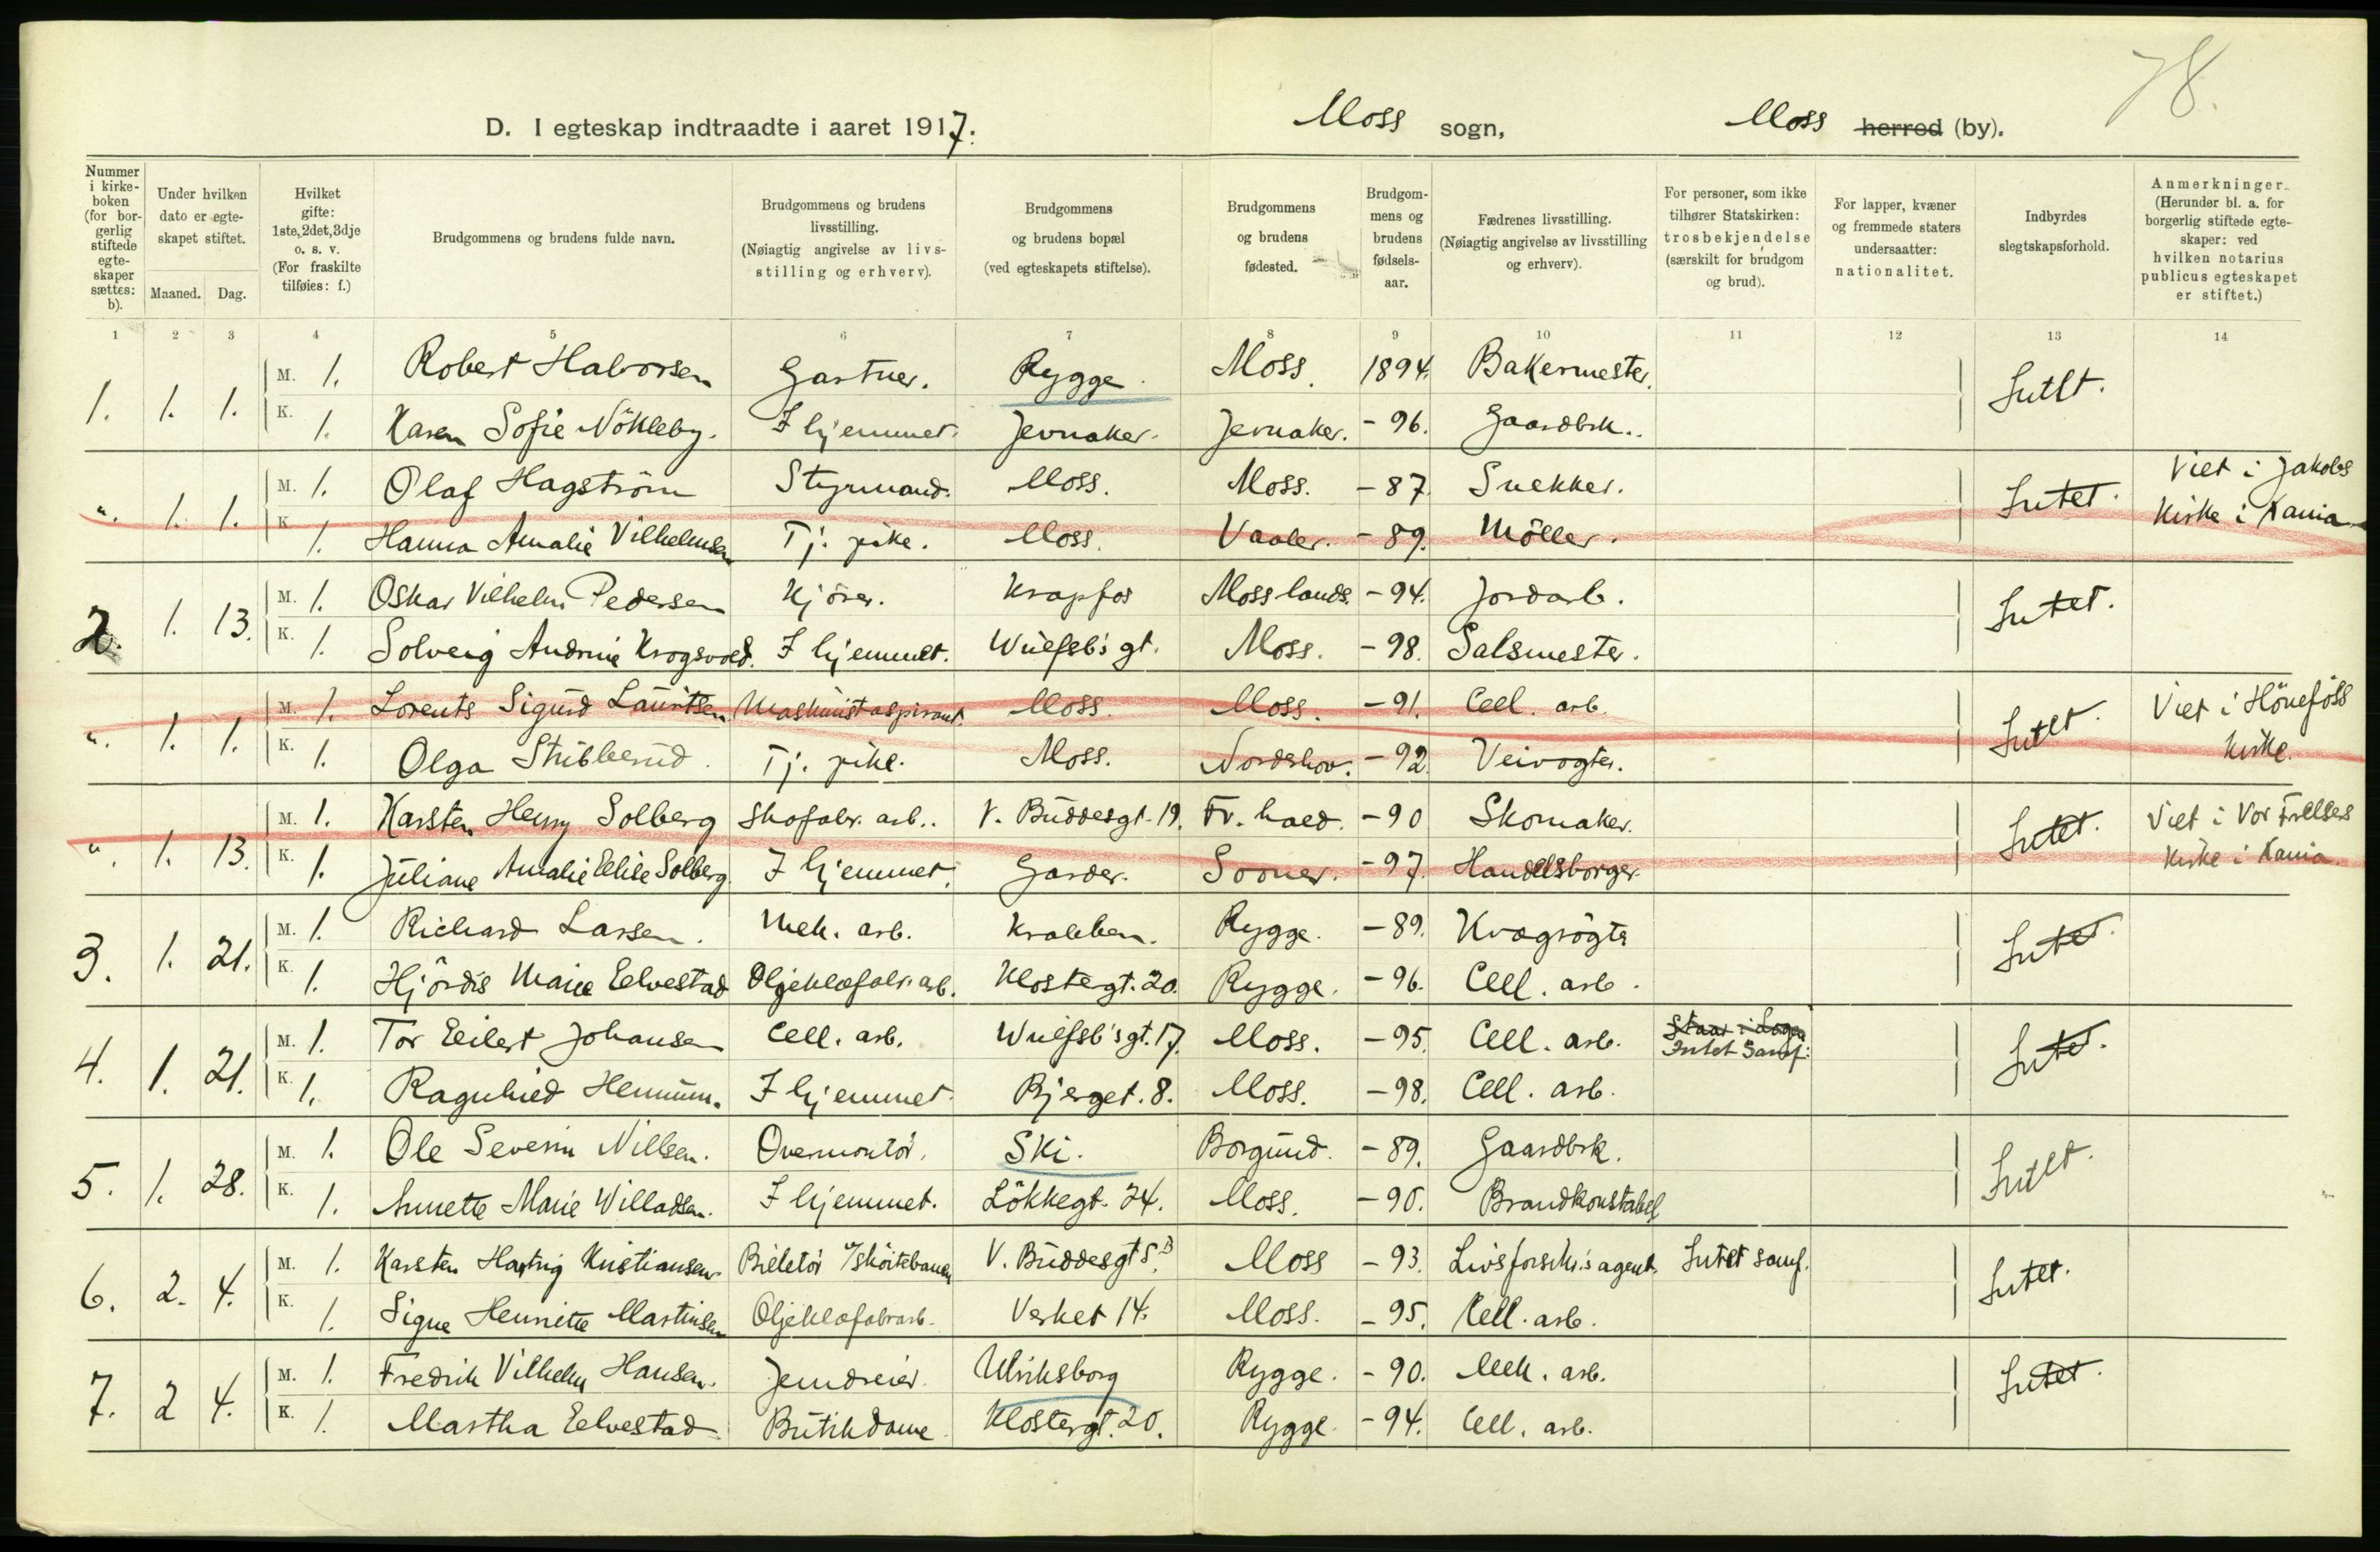 78.
D. I egteskap indtraadte i aaret 1917. Moss sogn, Moss herred (by).
Nummer i kirke-boken (for bor-gerlig stiftede egte-skaper sættes: b).
Under hvilken dato er egte-skapet stiftet.
Maaned. Dag.
Hvilket gifte: 1ste, 2det, 3dje o. s. v. (For fraskilte tilføies: f.)
Brudgommens og brudens fulde navn.
Brudgommens og brudens livsstilling. (Nøiagtig angivelse av livs-stilling og erhverv).
Brudgommens og brudens bopæl (ved egteskapets stiftelse).
Brudgommens og brudens fødested.
Brudgom-mens og brudens fødsels-aar.
Fædrenes livsstilling. (Nøiagtig angivelse av livsstilling og erhverv).
For personer, som ikke tilhører Statskirken: trosbekjendelse (særskilt for brudgom og brud).
For lapper, kvæner og fremmede staters undersaatter: nationalitet.
Indbyrdes slegtskapsforhold.
Anmerkninger. (Herunder bl. a. for borgerlig stiftede egte-skaper: ved hvilken notarius publicus egteskapet er stiftet.)
1 2 3 4 5 6 7 8 9 10 11 12 13 14
1. 1. 1. M. 1. Robert Halvorsen Gartner. Rygge. Moss. 1894. Bakermester. Intet.
K. 1. Karen Sofie Nökleby. I hjemmet. Jevnaker. Jevnaker. -96. Gaardbrk..
". 1. 1. M. 1. Olaf Hagström Styrmand. Moss. Moss. -87. Snekker. Intet. Viet i Jakobs
K. 1. Hanna Amalie Vilhelmsen Tj. pike. Moss. Vaaler. -89. Möller. Kirke i Kania
2. 1. 13. M. 1. Oskar Vilhelm Pedersen Kjörer. Krapfos Moss lands. -94. Jordarb. Intet.
K. 1. Solveig Andrine Krogsvold. I hjemmet. Wulfsb's gt. Moss. -98. Salsmester.
". 1. 1. M. 1. Lorents Sigurd Lauritsen. Maskinistaspirant. Moss. Moss. -91. Cell. arb. Intet. Viet i Hönefoss
K. 1. Olga Stubberud. Tj. pike. Moss. Norderhov. -92. Veivogter. Kirke.
". 1. 13. M. 1. Karsten Henry Solberg Skofabr. arb.. V. Buddesgt. 19. Fr. hald. -90 Skomaker. Intet. Viet i Vor Frelsers
K. 1. Juliane Amalie Elise Solberg. I hjemmet. Garder. Sooner. -97. Handelsborger. Kirke i Kania.
3. 1. 21. M. 1. Richard Larsen. Mek. arb. Krabben. Rygge. -89. Kvægrögter Intet.
K. 1. Hjördis Marie Eelvestad Oljeklæfabr. arb. Klostergt. 20. Rygge. -96. Cell. arb.
4. 1. 21. M. 1. Tor Eilert Johansen Cell. arb. Wulfsb's gt. 17. Moss. -95. Cell. arb. Staar i Logen Intet Samf: Intet.
K. 1. Ragnhild Hemmum. I hjemmet. Bjerget. 8. Moss. -98. Cell. arb.
5. 1. 28. M. 1. Ole Severin Nillsen. Overmontör. Ski. Borgund. -89. Gaardbrk. Intet.
K. 1. Annette Marie Willadsen. I hjemmet. Lökkegt. 24. Moss. -90. Brandkonstabel
6. 2. 4. M. 1. Karsten Hartvig Kristiansen Billetör v/ sköitebanen V. Buddesgt 5.B Moss -93. Livsforsikr.s agent. Intet samf. Intet.
K. 1. Signe Henriette Martinsen Oljeklæfabrarb. Verket 14. Moss. -95. Cell. arb.
7. 2 4. M. 1. Fredrik Vilhelm Hansen. Jerndreier. Ulriksborg Rygge. -90. Mek. arb. Intet.
K. 1. Martha Eelvestad Butikdame. Klostergt. 20. Rygge. -94. Cell. arb.